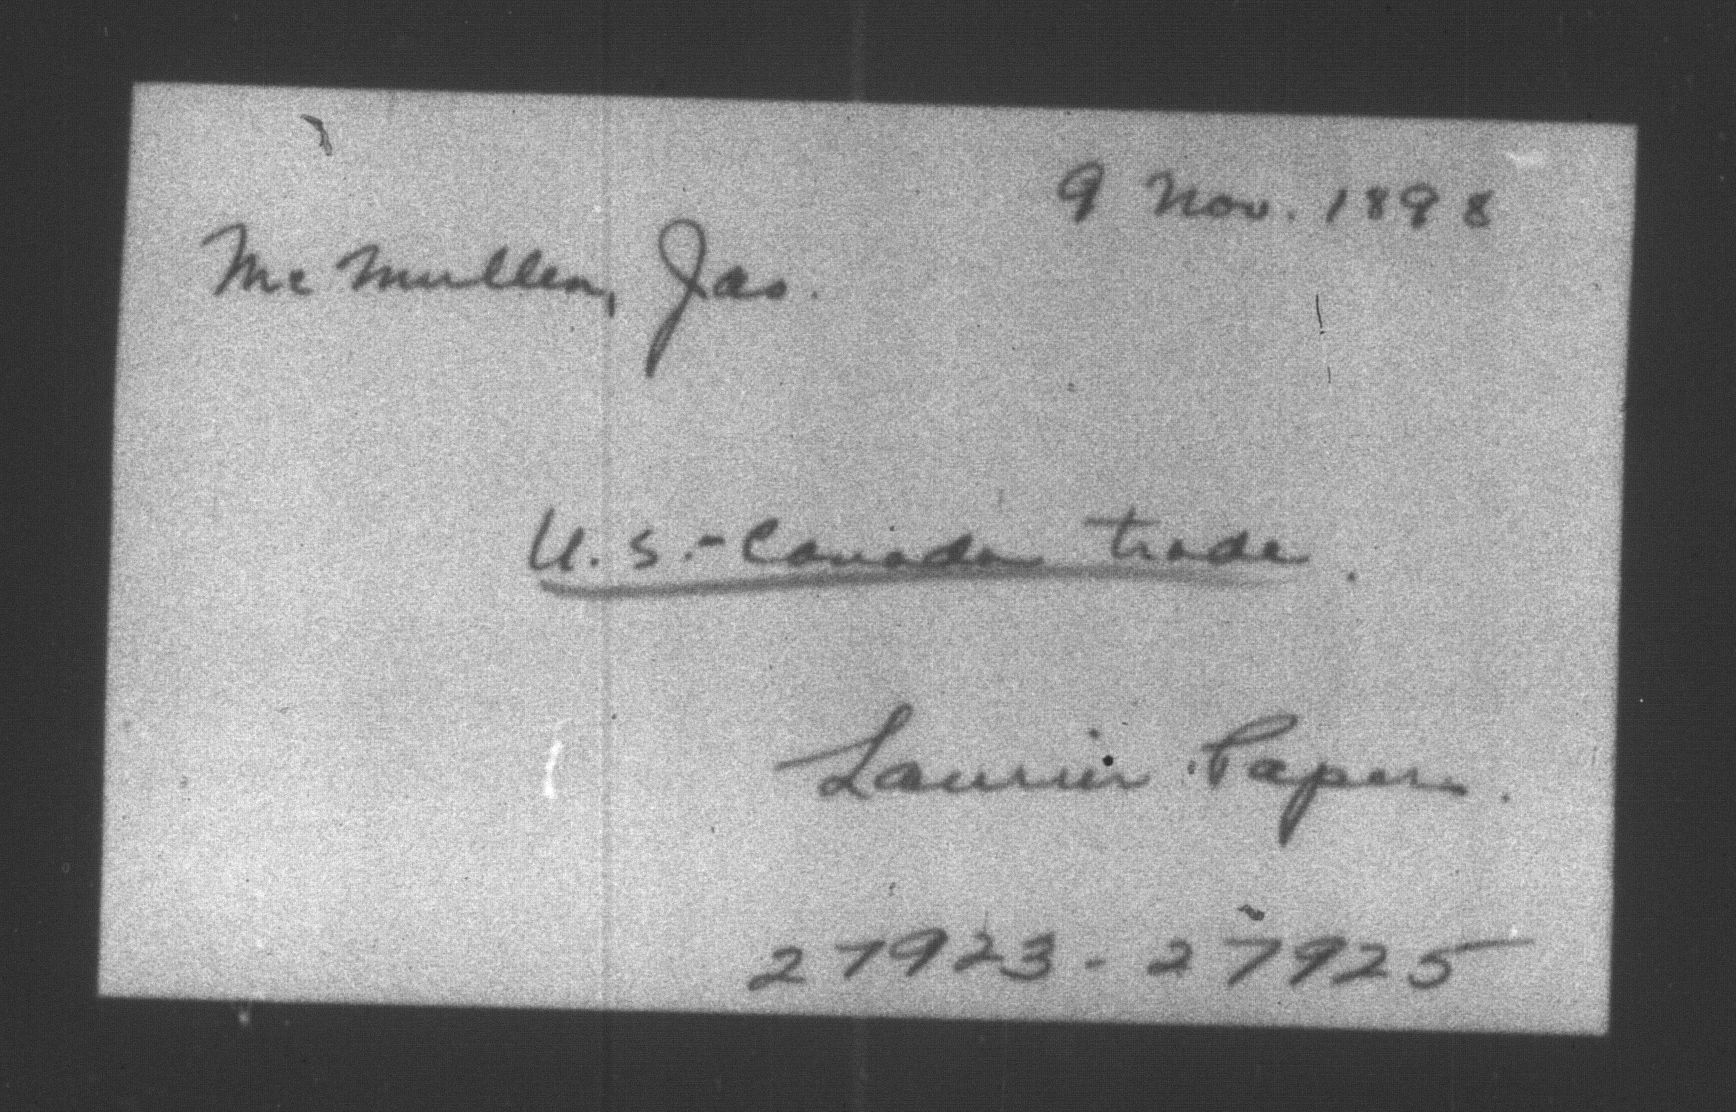 9 Nov. 1898
McMullen, Jas.
U.S.-Canada trade.
Laurier Papers.
27923-27925